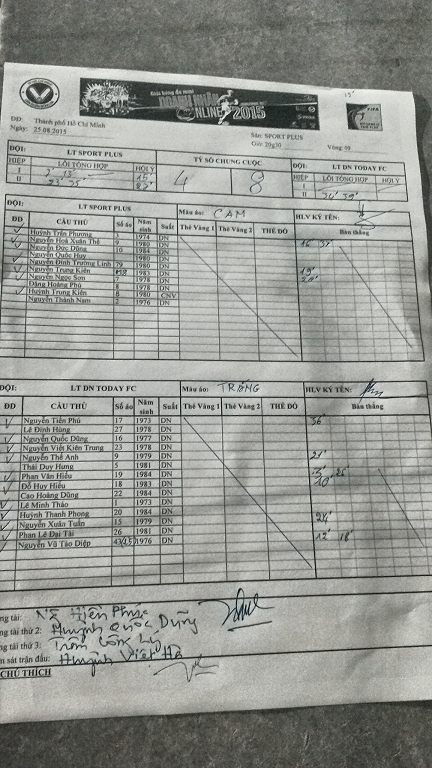 Giải bóng đá mini
DOANH NHÂN
ONLINE 2015
15'
FIFA
DD: Thành phố Hồ Chí Minh
Ngày: 25.08.2015
Sân: SPORT PLUS
Giờ: 20g30
Vòng: 09
ĐỘI: LT SPORT PLUS
TỶ SỐ CHUNG CUỘC
ĐỘI: LT DN TODAY FC
HIỆP LỖI TỔNG HỢP HỘI Ý
4 8
HIỆP LỖI TỔNG HỢP HỘI Ý
I
II
I
II 34' 39'
ĐỘI: LT SPORT PLUS Màu áo: CAM HLV KÝ TÊN:
DD CẦU THỦ Số áo Năm sinh Suất Thẻ Vàng 1 Thẻ Vàng 2 THẺ ĐỎ Bàn thắng
Huỳnh Trấn Phương 1974 DN
Nguyễn Hoà Xuân Thế 9 1980 DN 16' 37'
Nguyễn Đức Dũng 10 1984 DN
Nguyễn Quốc Huy 1980 DN
Nguyễn Đình Trường Linh 79 1980 DN
Nguyễn Trung Kiên 1983 DN 19'
Nguyễn Ngọc Sơn 7 1978 DN
Đặng Hoàng Phú 8 1978 DN
Huỳnh Trung Kiên 8 1980 CNV
Nguyễn Thành Nam 2 1976 DN
ĐỘI: LT DN TODAY FC Màu áo: TRẮNG HLV KÝ TÊN:
DD CẦU THỦ Số áo Năm sinh Suất Thẻ Vàng 1 Thẻ Vàng 2 THẺ ĐỎ Bàn thắng
Nguyễn Tiến Phú 17 1973 DN 36'
Lê Đình Hùng 27 1978 DN
Nguyễn Quốc Dũng 16 1977 DN
Nguyễn Viết Kiên Trung 23 1978 DN
Nguyễn Thế Anh 9 1979 DN 21'
Thái Duy Hưng 5 1981 DN
Phan Văn Hiếu 19 1984 DN
Đỗ Huy Hiếu 18 1983 DN 10'
Cao Hoàng Dũng 22 1984 DN
Lê Minh Thảo 1 1973 DN
Huỳnh Thanh Phong 20 1984 DN
Nguyễn Xuân Tuấn 15 1979 DN 24'
Phan Lê Đại Tài 26 1981 DN
Nguyễn Vũ Táo Diệp 1976 DN 12' 18'
ng tài:
ng tài thứ 2: Huỳnh Quốc Dũng
ng tài thứ 3:
m sát trận đấu: Huỳnh Việt
CHÚ THÍCH